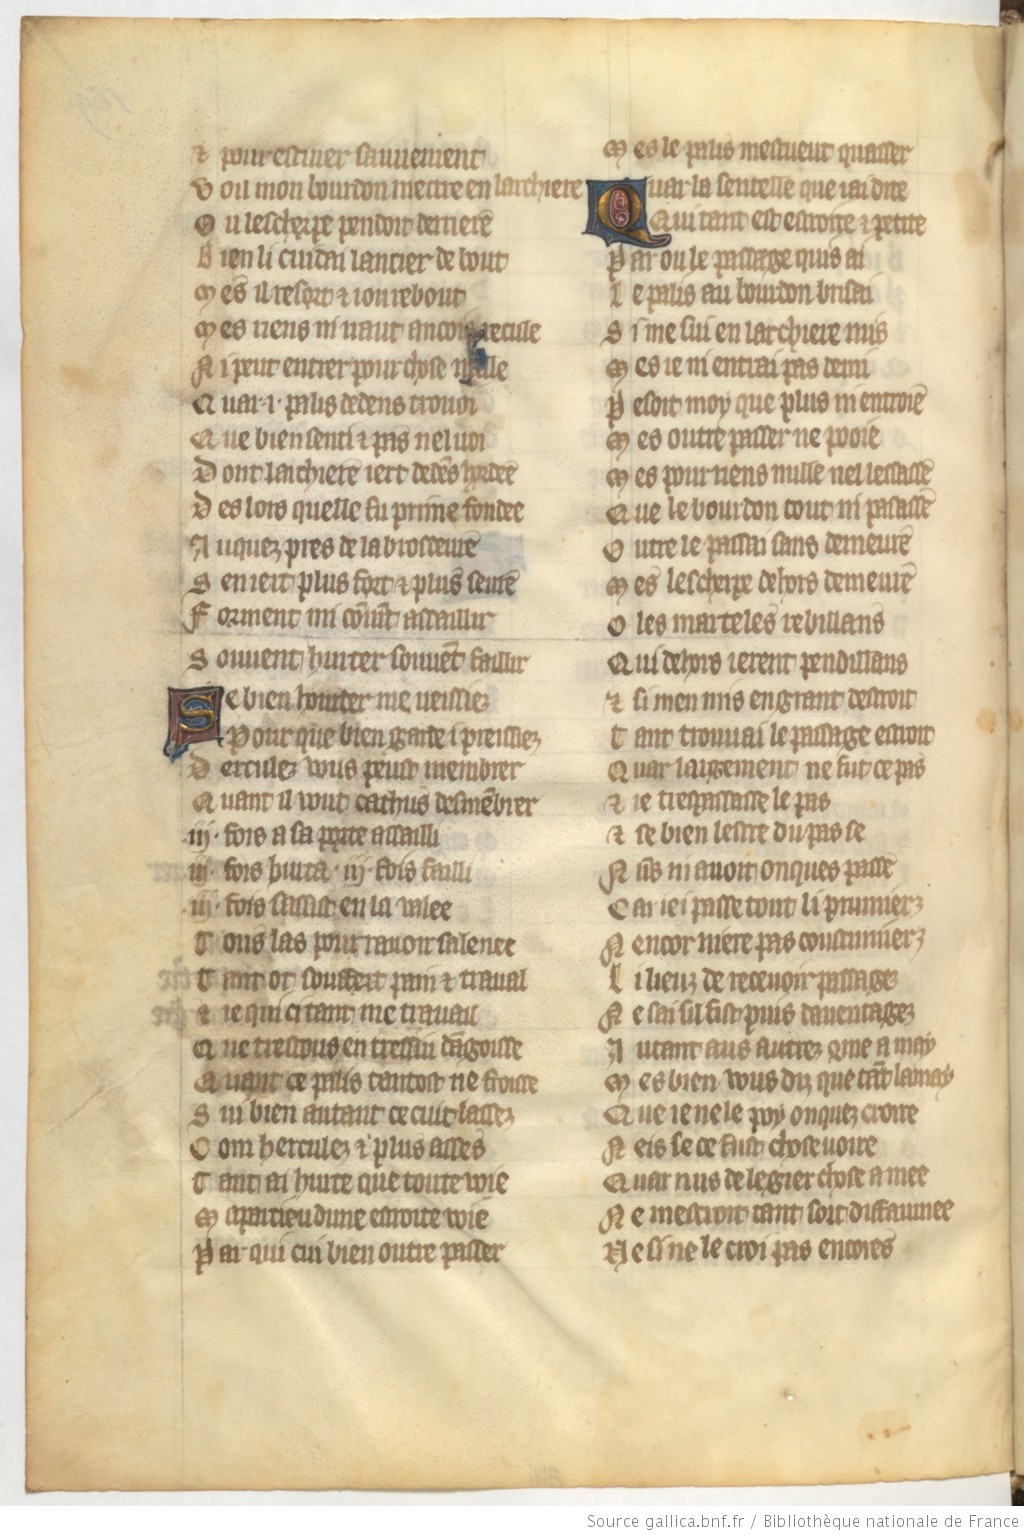 ⁊ pour estuier sauuement
V ou mon bourdon mettre en larchiere
O u lescherpe pendoit derriere̅
B ien li cuidai lancier de bout
M es il resort ⁊ iou rebout
M es riens ni uaut ancois recule
N i peut entrer pour chose nulle
Q uar ·i· palis dedens trouoi
Q ue bien senti ⁊ pas nel uoi
D ont larchiere̅ iert dede̅s hordee̅
D es lors quelle fu prime fondee
A uquez pres de la brosseure̅
S en iert plus fort ⁊ plus̅ seure̅
F orment mi co̅ui̅t assaillir
S ouuent hurter souue̅t faillir
S e bien hourder me ueissiez
Pour que bien garde i preissiez
D ercules vous peust membrer
Q uant il vout cachus desme̅brer
·iij· fois a sa porte assailli
·iij· fois hurta ·iij· fois failli
·iij· fois sassist en la valee
T ous las pour rauoir salenee
T ant ot souffert pain ⁊ traual
⁊ ie qui ci tant me trauail
Q ue trestous en tressui da̅goisse
Q uant ce palis tantost ne froisse
S ui bien autant ce cuit lassez
C om herculez ⁊ plus asses
T ant ai hurte que toute voie
M apartieu dune estroite voie
P ar qui cui bien outre passer
M es le palis mestueut quasser
Q uar la sentelle que iai dite
Qui tant est estroite ⁊ petite
P ar ou le passage quis ai
L e palis au bourdon brisai
S i me sui en larchiere mis
M es ie ni entrai pas demi
P esoit moy que plus ni entroie̅
M es outre passer ne pooie
M es pour riens nulle nel lessasse̅
Q ue le bourdon tout ni passasse̅
O utre le passai sans demeure̅
M es lescherpe dehors demeure̅
O les marteles rebillans
Q ui dehors ierent pendillans
⁊ si men mis en grant destroit
T ant trouuai le passage estroit
Q uar largement ne fut ce pas
⁊ ie trespassasse le pas
⁊ se bien lestre du pas se
N us ni auoit onques passe̅
C ar iei passe tout li prumierz
N encor niere pas coustumierz
L i lieuz de receuoir passages
N e sai sil fist puis dauentagez
A utant aus autrez q̅me a may
M es bien vous diz que ta̅t lamay
Q ue ie ne le poy onquez croire
N eis se ce fust chose uoire
Q uar nus de legier chose amee
N e mescroit tant soit diffaumee
N e si ne le croi pas encores
Source gallica.bnf.fr / Bibliothèque nationale de France